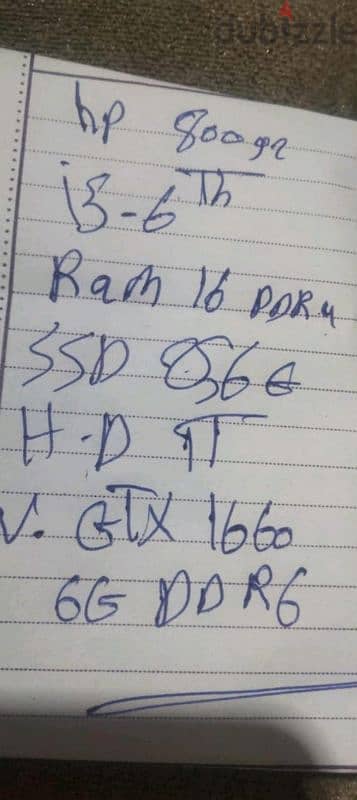 dubizzle
hp 800g2
i5-6Th
Ram 16 DDR4
SSD 256G
H.D 1T
V. GTX 1660
6G DDR6